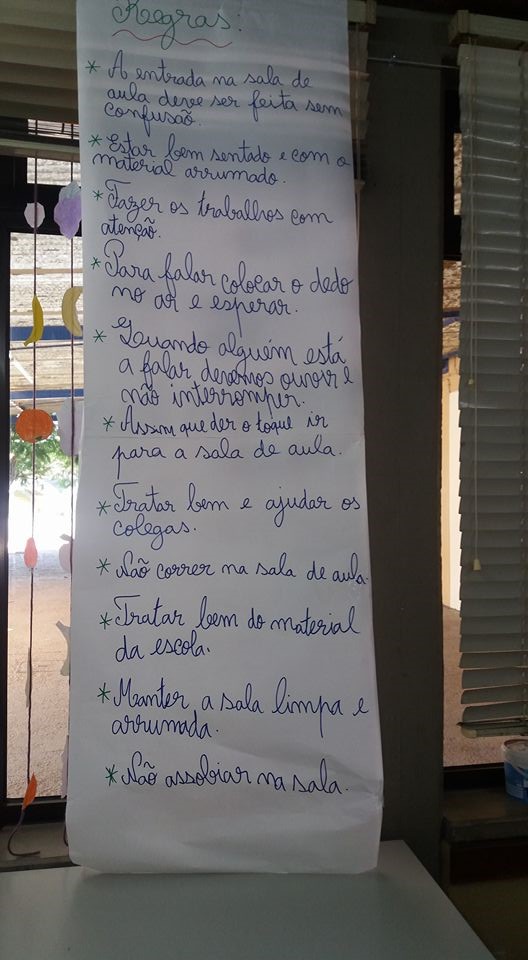 Regras:
* A entrada na sala de
aula deve ser feita sem
confusão.
* Estar bem sentado e com o
material arrumado.
* Fazer os trabalhos com
atenção.
* Para falar colocar o dedo
no ar e esperar.
* Quando alguém está
a falar devemos ouvir e
não interromper.
* Assim que der o toque ir
para a sala de aula.
* Tratar bem e ajudar os
colegas.
* Não correr na sala de aula.
* Tratar bem do material
da escola.
* Manter a sala limpa e
arrumada.
* Não assobiar na sala.